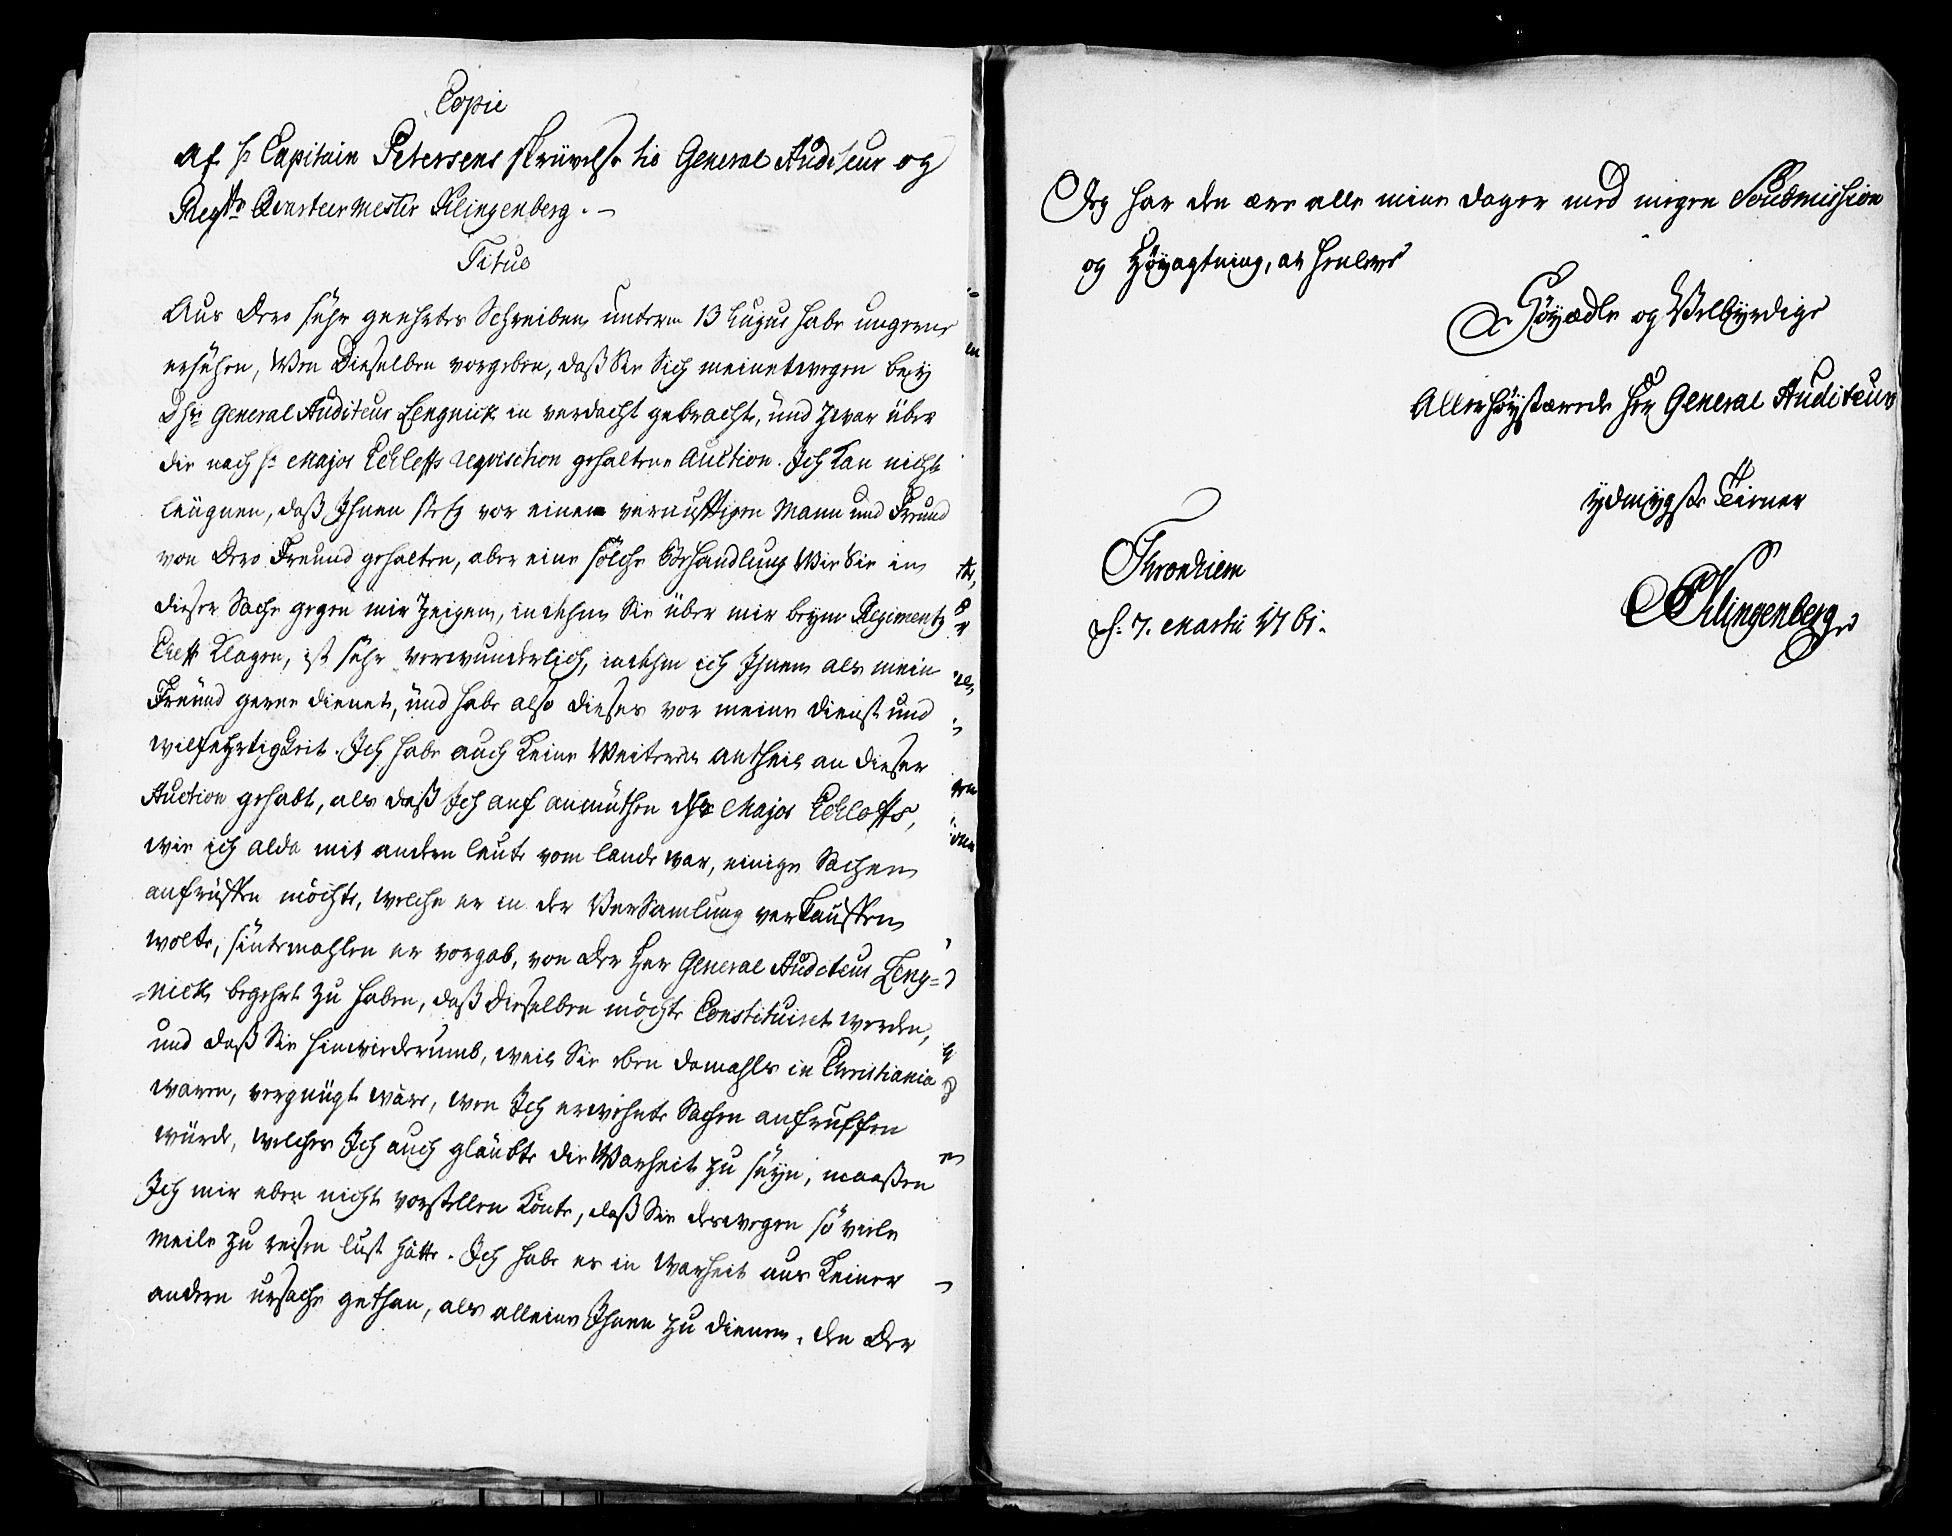 Copie
Af hr Capitain Petersens skrivelse til General Auditeur og
Regtz Qvarteermester Klingenberg. -
Titul
Aus Dero sehr geehrtes Schreiben unterm 13 hugus habe ungerne
ersehen, Wen Dieselben vorgeben, daß Sie Sich meinetwegen bey
Hr General Auditeur Lengnick in verdacht gebracht, und zwar über
die nach hr Major Eckleffs requisition gehaltene Auction. Ich kan nicht
leugnen, daß Ihnen stetz vor einen vernunfftigen Mann und Freund
von Dero Freund gehalten, aber eine solche Behandlung Wie Sie in
dieser Sache gegen mir zeigen, indehm Sie über mir beym Regimentz
Cheff klagen, ist sehr verwunderlich, indehm ich Ihnen als mein
Freund gerne dienet, und habe also dieses vor meine dienst und
wilfehrtigkeit. Ich habe auch keine Weitern antheil an dieser
Auction gehabt, als daß Ich auf anmuthen Hr Major Eckloffs,
wie ich alda mit andern leute vom lande war, einige Sachen
aufruffen möchte, welche er in der VerSamlung verkauffen
wolte, sintemahlen er vorgab, von der Her General Auditeur Leng=
=nick begehrt zu haben, daß dieselben möchte Constituiret werden,
und daß Sie hinwiederumb, weil Sie eben damahls in Christiania
waren, vergnügt wäre, wen Ich erwehnte Sachen aufruffen
würde, welches Ich auch gläubte die Warheit zu seyn, maaßen
Ich mir aber nicht vorstellen könte, daß Sie deswegen so viele
Meile zu reisen lust hätte. Ich habe es in Warheit aus keiner
andern ursache gethan, als alleine Ihnen zu dienen, den der
Jeg har den ære alle mine dager med megen Soubmission
og Høyagtning, at henleve
Høyædle og Velbyrdige
Allerhøystærede Hr General Auditeur
ydmygste Tiener
Throndhiem
d: 7. Martii 1761.
Klingenberg